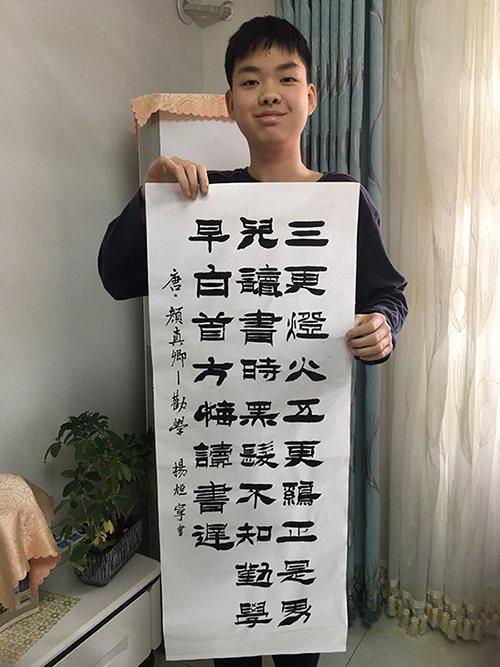 三更燈火五更鷄正是男
兒讀書時黑髮不知勤學
早白首方悔讀書遲
唐·顏真卿一勸學 楊烜寧書